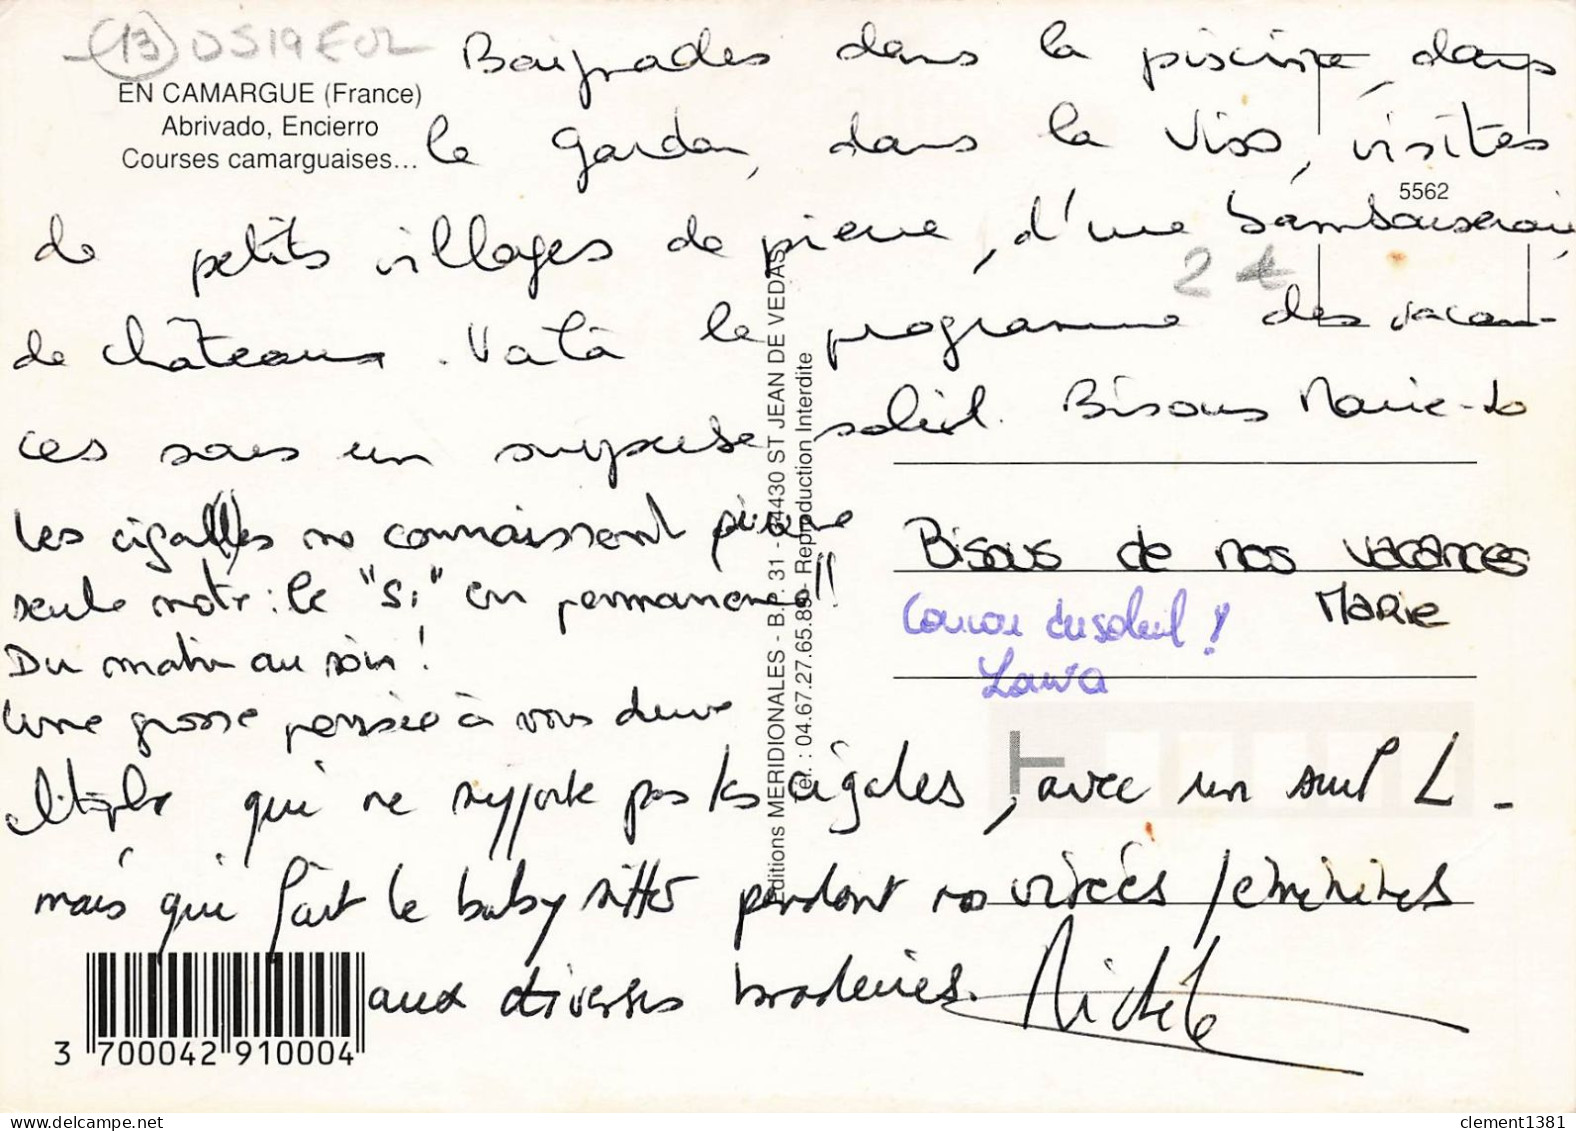 (13) DS19EUL
EN CAMARGUE (France)
Abrivado, Encierro
Courses camarguaises...
Baignades dans la piscine, dans
le Gardon, dans la Viss, visites
5562
de petits villages de pierre, d'une bambouseraie,
2 €
de châteaux. Voilà le programme des vacan-
ces sous un superbe soleil. Bisous Marie-Lo
Les cigalles ne connaissent qu'une
seule note : le "si" en permanence !!
Du matin au soir !
Une grosse pensée à vous deux
qui ne supporte pas les cigales, avec un seul L -
mais qui fait le baby sitter pendant nos virées féminines
aux diverses broderies. Michèle
Bisous de nos vacances
Marie
Coucou du soleil !
Laura
Editions MERIDIONALES - B.P. 31 - 34430 ST JEAN DE VEDAS
Tél. : 04.67.27.65.89 - Reproduction Interdite
3 700042 910004
clement1381